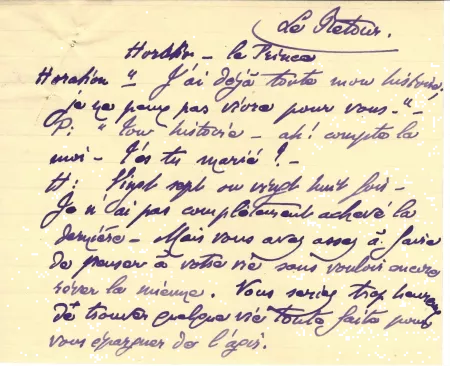 Le Retour.
Horation - le Prince
Horation " J'ai déjà toute mon histoire.
je ne peux pas vivre pour vous - " -
P: " Ton histoire - ah! compte la
moi - T'es tu marié ? -
H: Vingt sept ou vingt huit fois -
Je n'ai pas complètement achevé la
dernière - Mais vous avez assez à faire
de penser à votre vie sans vouloir encore
rêver la mienne. Vous seriez trop heureux
de trouver quelque vie toute faite pour
vous épargner de l'agir.